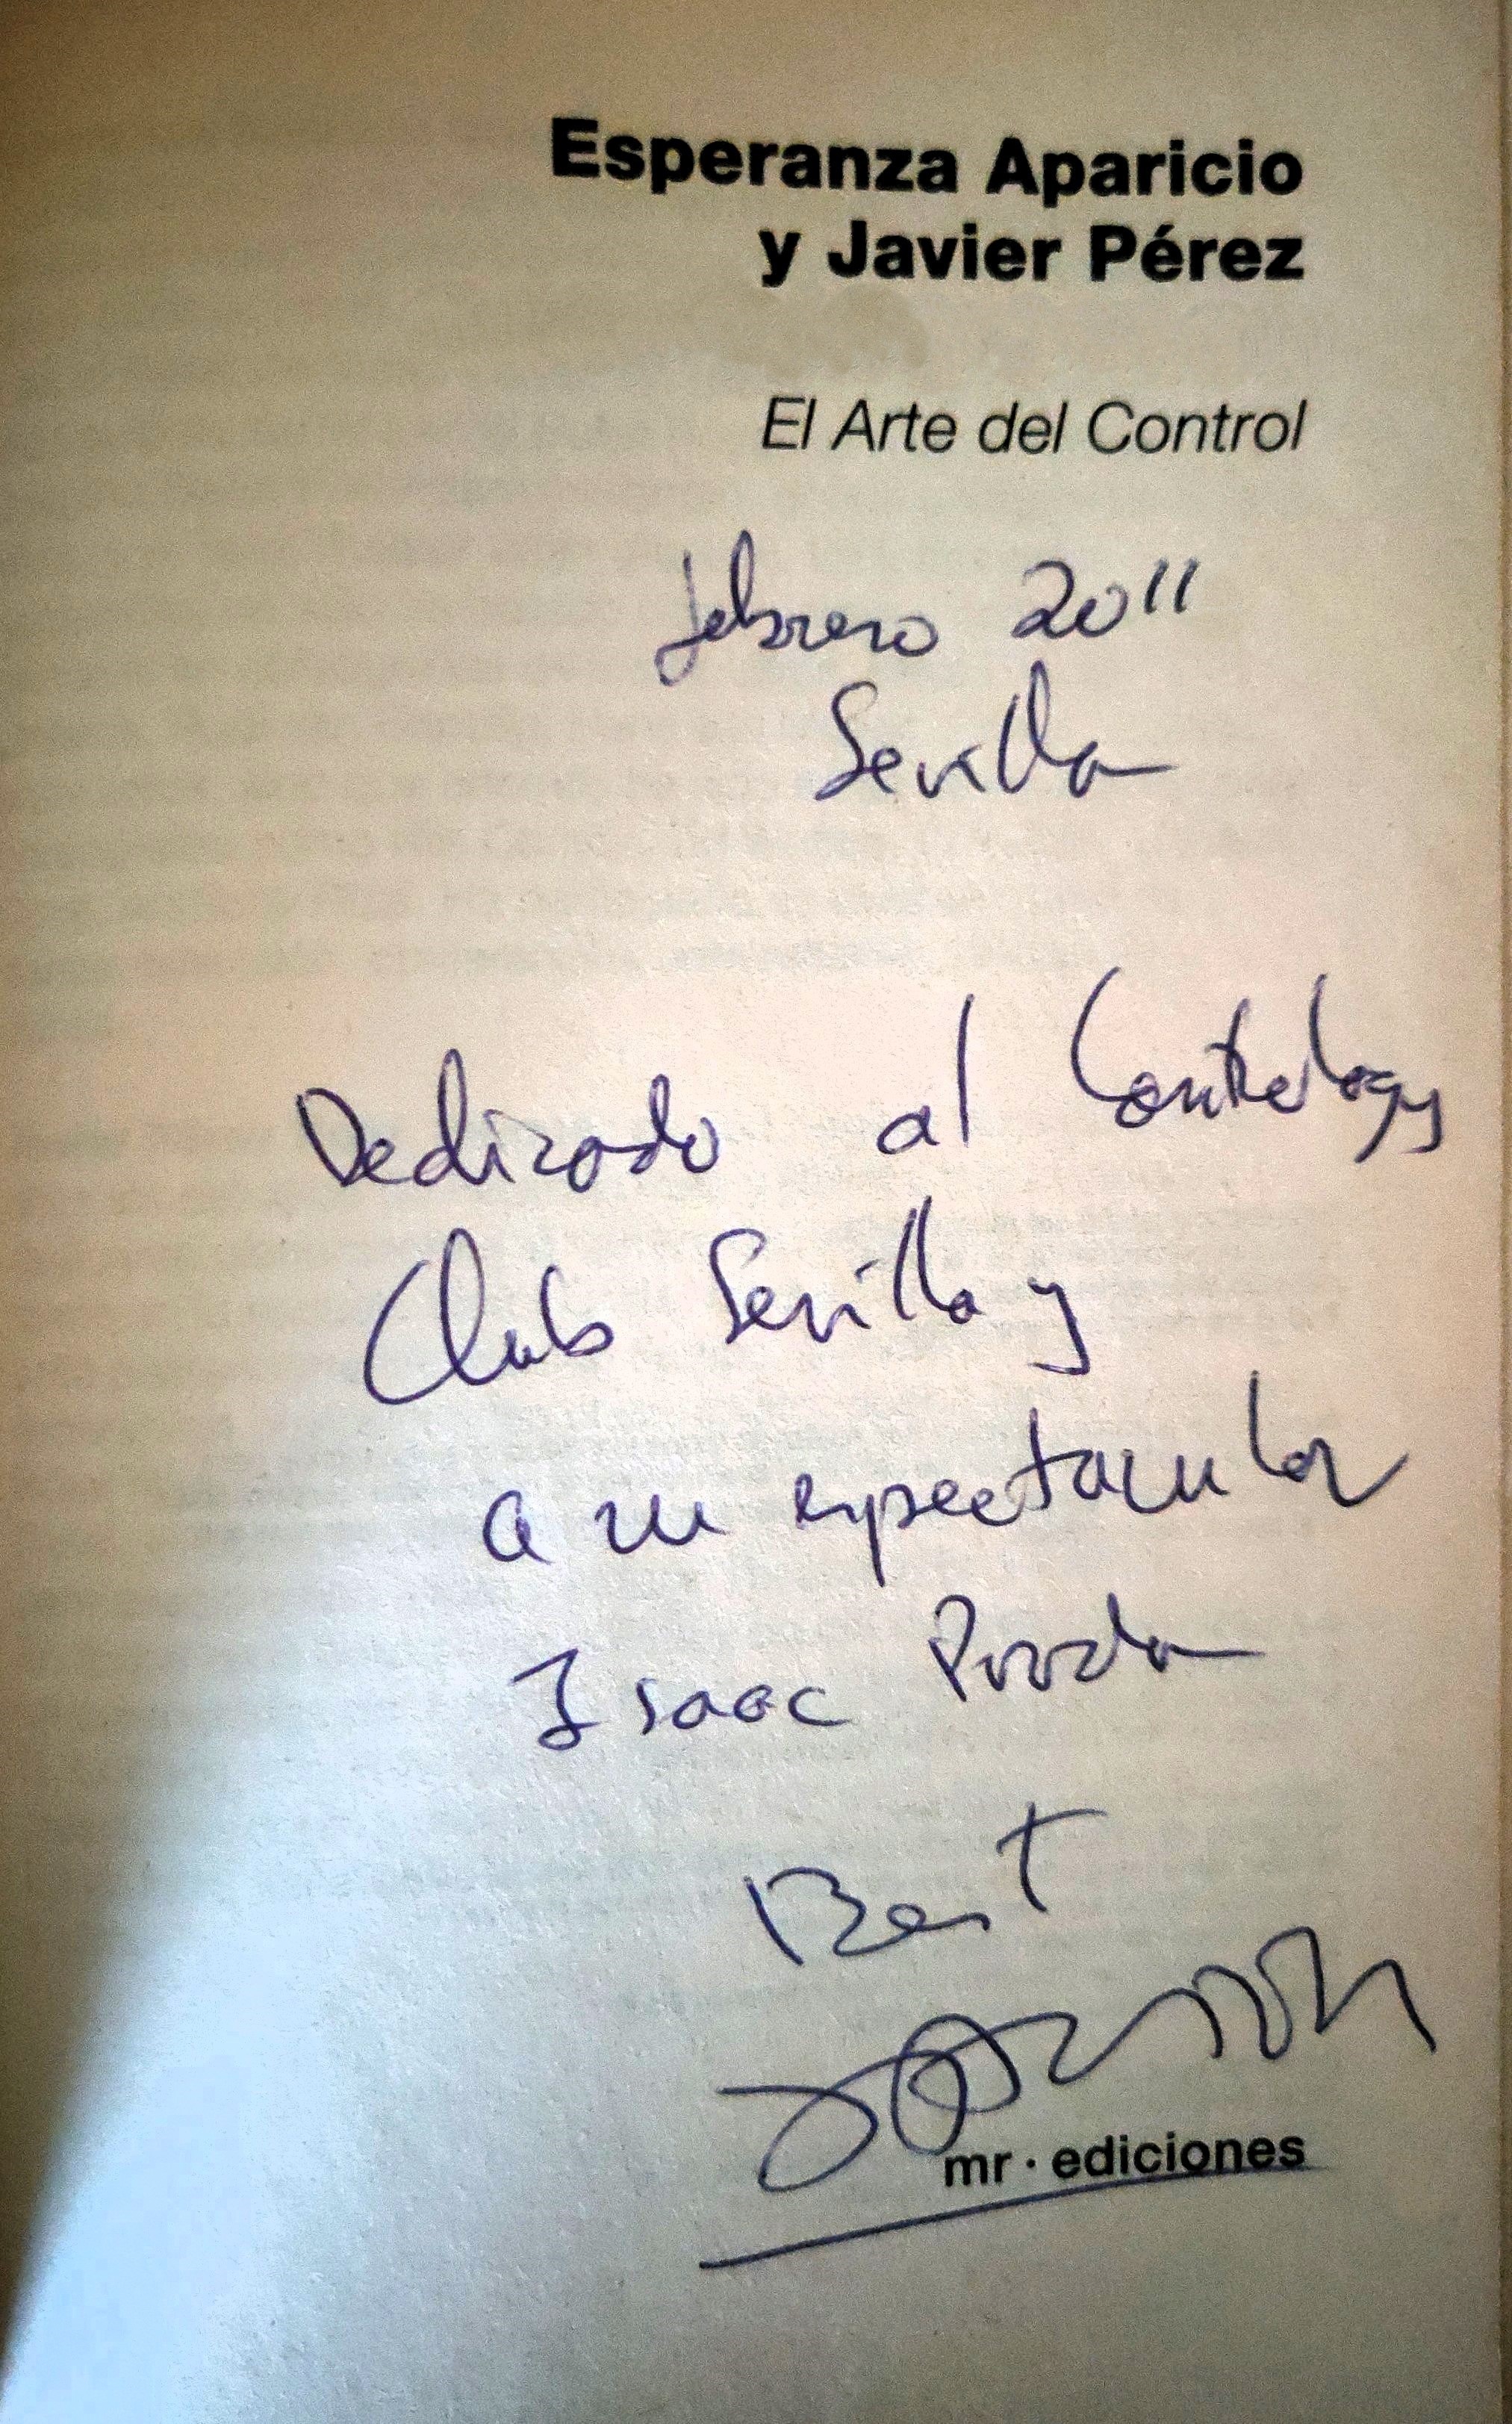 Esperanza Aparicio
y Javier Pérez
El Arte del Control
febrero 2011
Sevilla
Dedicado al Contrology
Club Sevilla y
a su espectacular
Isaac
Best
mr · ediciones